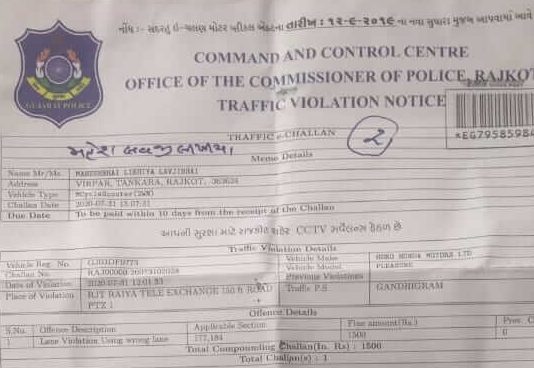 નોંધ :- સદરહુ ઈ-ચલણ મોટર વ્હીકલ એક્ટના તારીખ : ૧૨-૯-૨૦૧૯ ના નવા સુધારા મુજબ આપવામાં આવે
COMMAND AND CONTROL CENTRE
OFFICE OF THE COMMISSIONER OF POLICE, RAJKOT
TRAFFIC VIOLATION NOTICE
GUJARAT POLICE
TRAFFIC e-CHALLAN
૨
Memo Details
Name Mr/Ms.
Address VIRPAR, TANKARA, RAJKOT,
Vehicle Type
Challan Date 2020-07-31
Due Date To be paid within 10 days from the receipt of the Challan
આપની સુરક્ષા માટે રાજકોટ શહેર CCTV સર્વેલન્સ હેઠળ છે
Traffic Violation Details
Vehicle Reg. No. Vehicle Make HERO HONDA MOTORS LTD
Challan No. Vehicle Model PLEASURE
Date of Violation 2020-07-31 Previous Violations
Place of Violation RJT RAIYA TELE EXCHANGE 150 ft ROAD Traffic P.S GANDHIGRAM
PTZ 1
Offence Details
S.No. Offence Description Applicable Section Fine amount(Rs.)
1 Lane Violation Using wrong lane 177,184 1500 0
Total Compounding Challan(In. Rs) : 1500
Total Challan(s) : 1